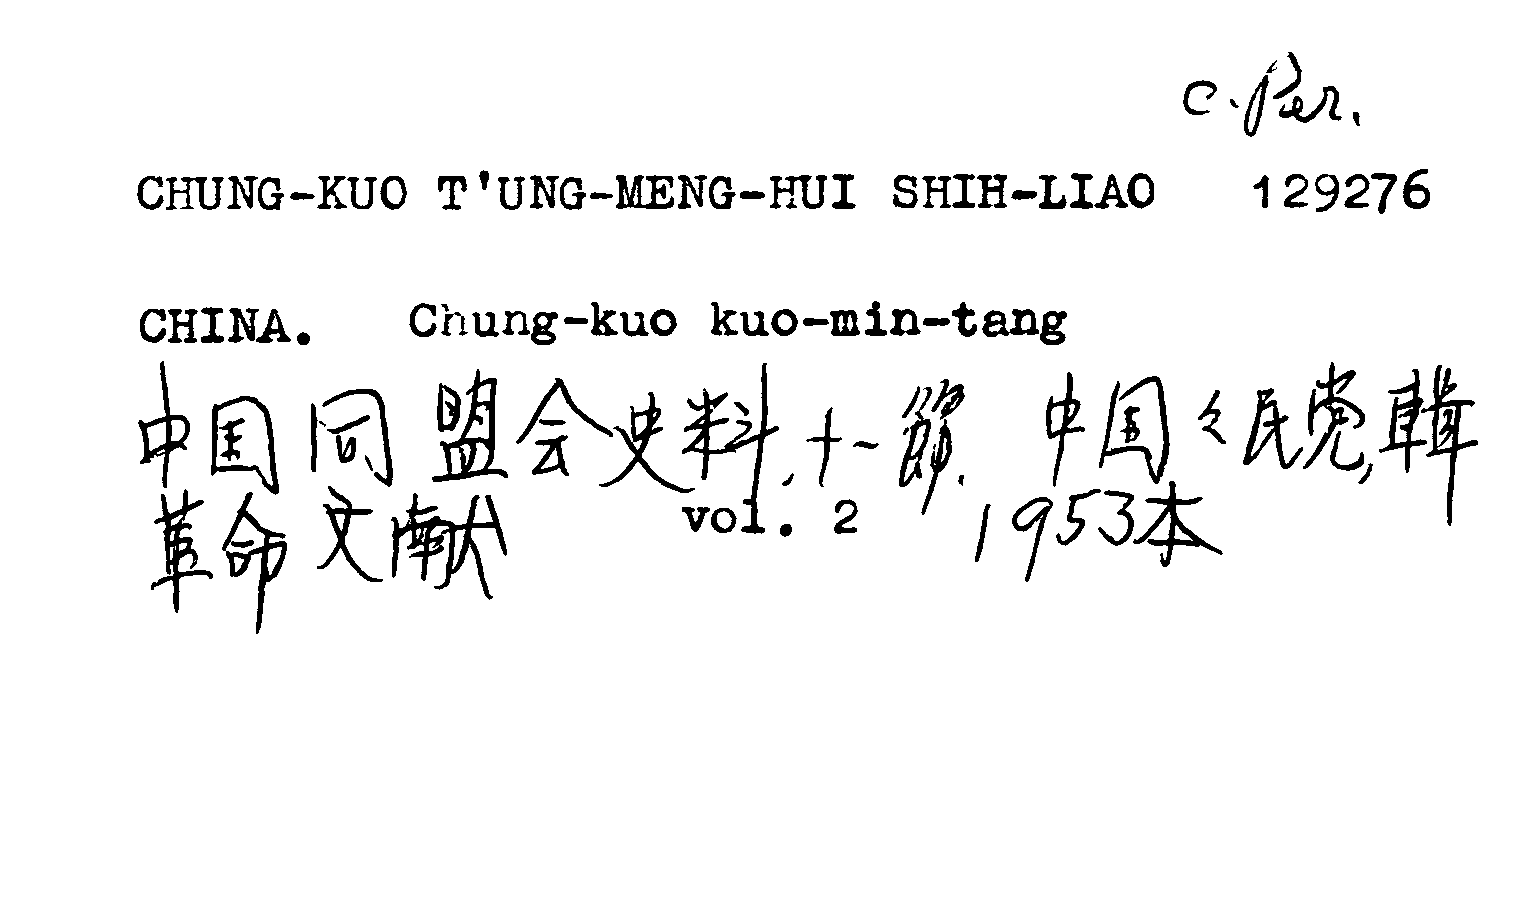 C. Per.
CHUNG-KUO T'UNG-MENG-HUI SHIH-LIAO 129276
CHINA. Chung-kuo kuo-min-tang
中国同盟会史料, 十一節. 中国々民党, 輯
革命文献 vol. 2 1953本